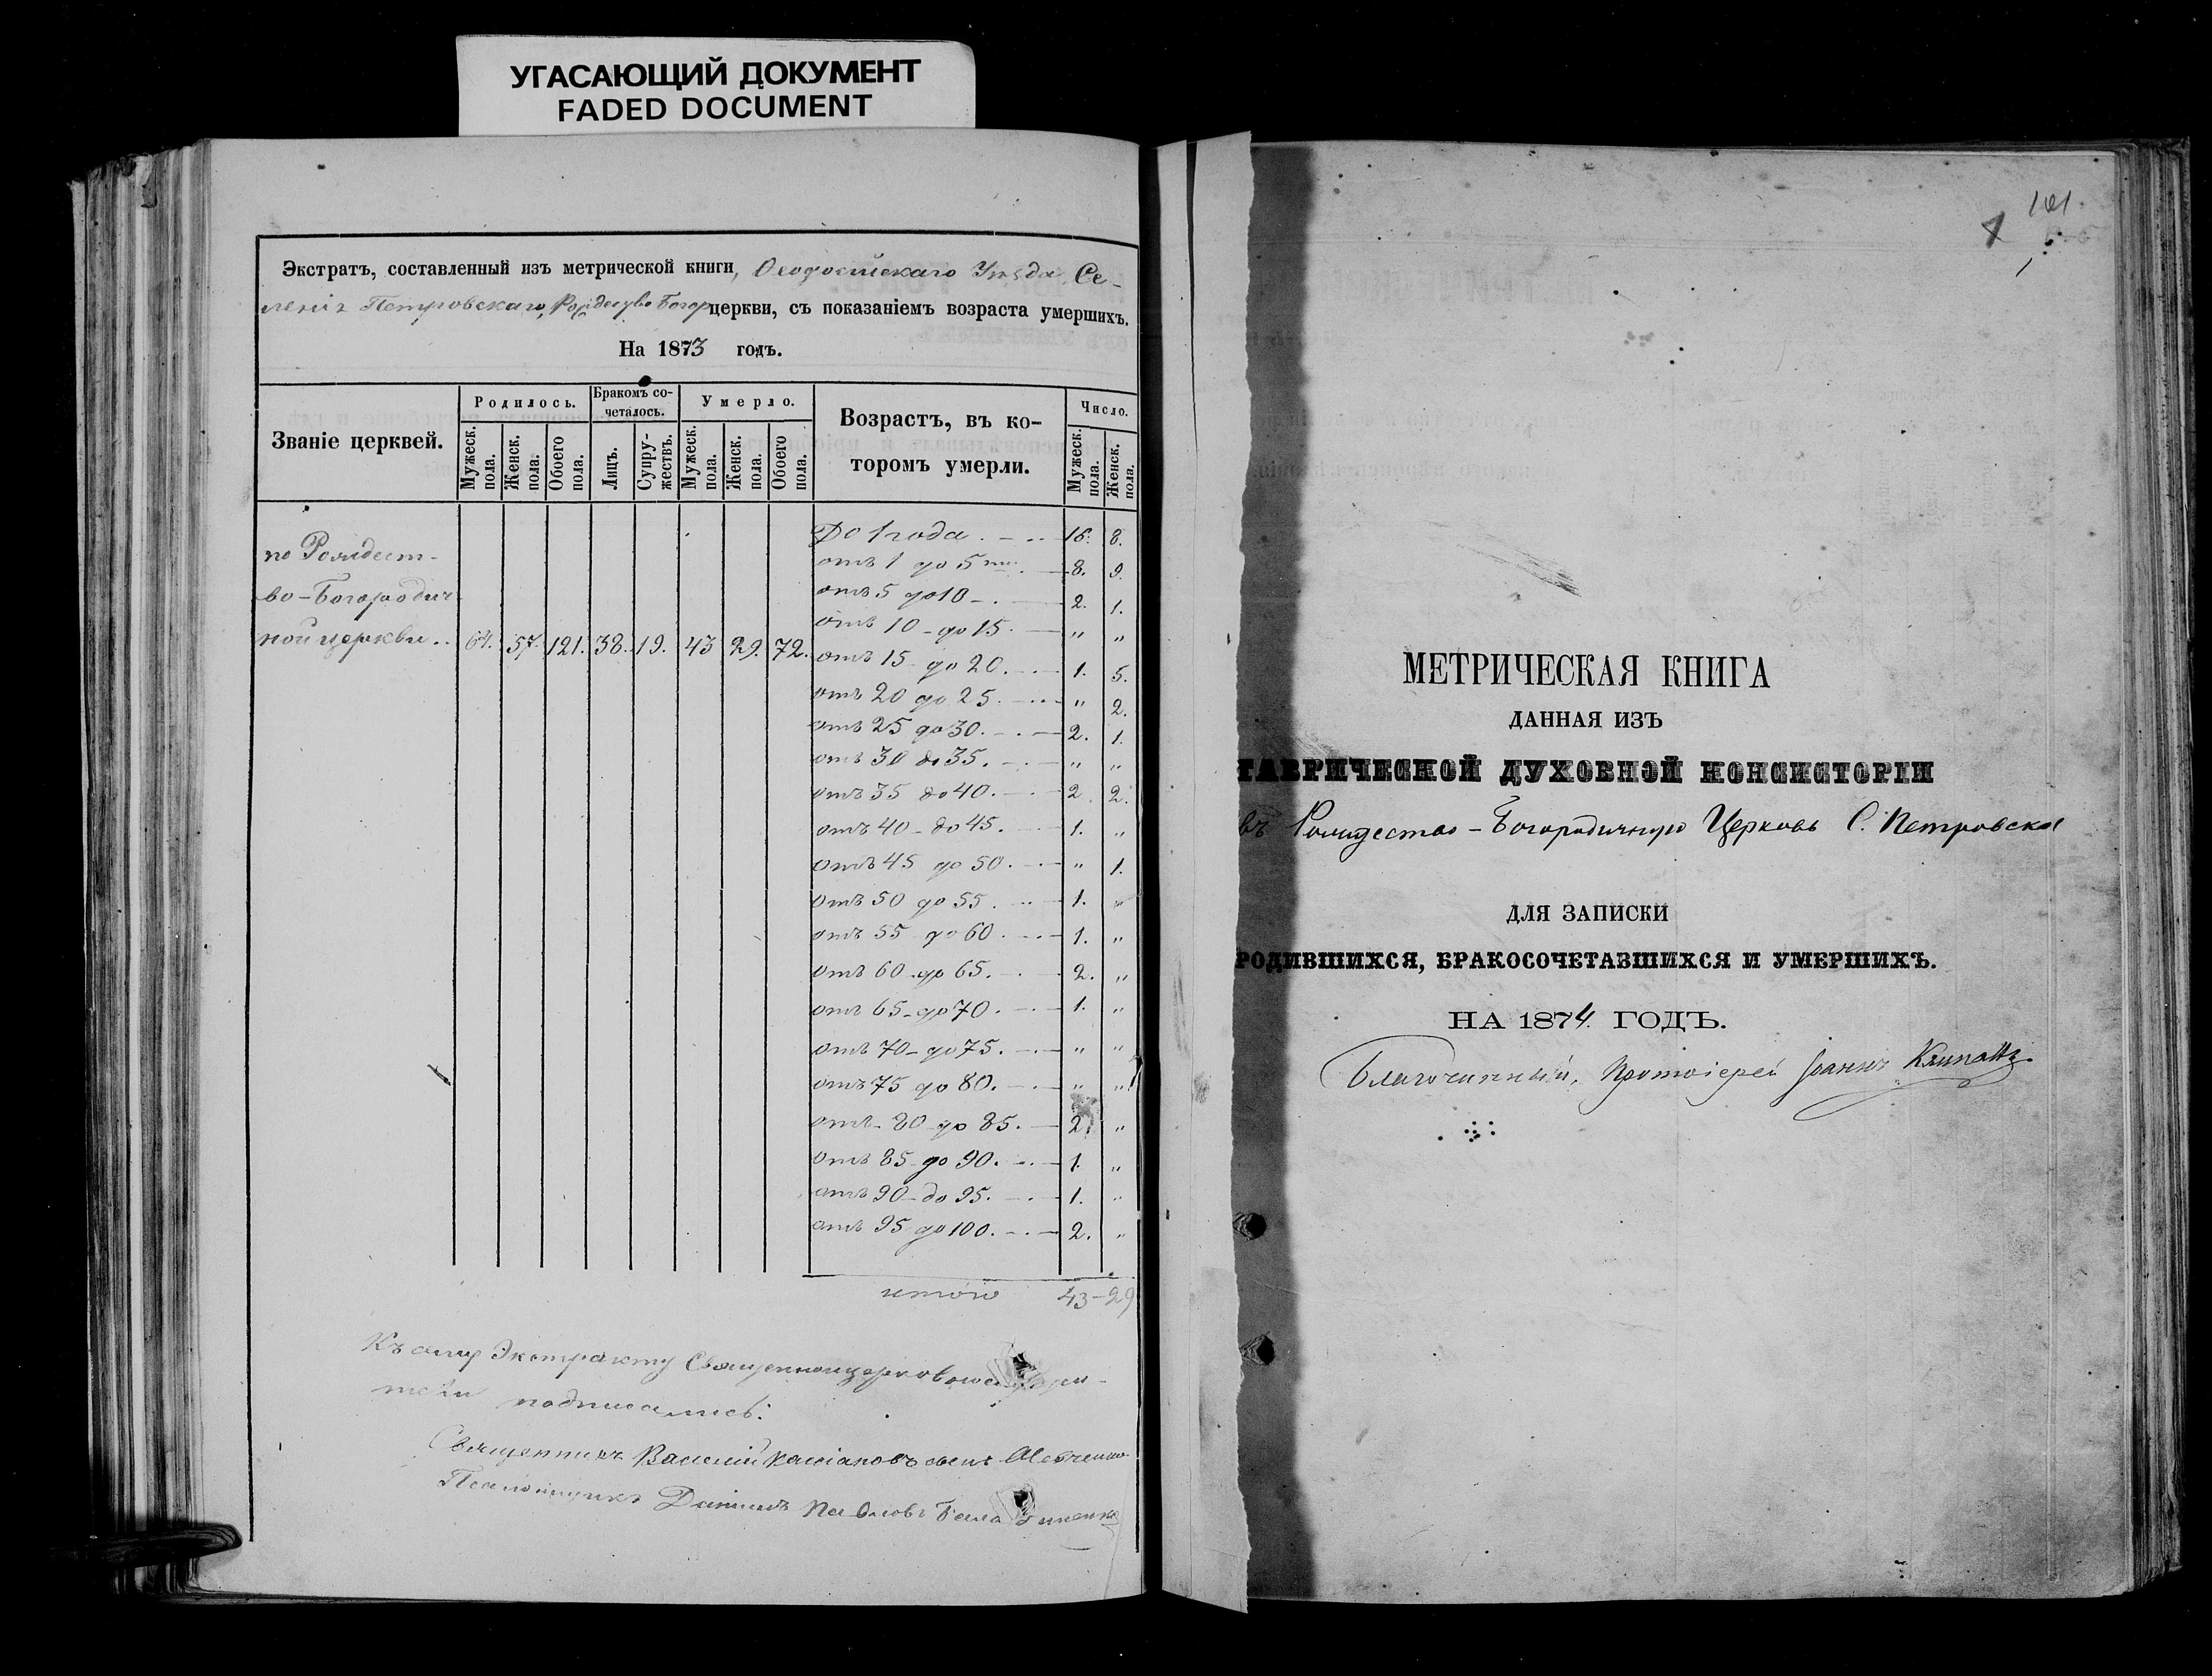 УГАСАЮЩИЙ ДОКУМЕНТ
FADED DOCUMENT
Экстратъ, составленный изъ метрической книги, Ѳеодосійскаго Уѣзда Се-
ленія Петровскаго, Рождество Богор церкви, съ показаніемъ возраста умершихъ.
На 1873 годъ.
Званіе церквей.
Родилось.
Мужеск. пола.
Женск. пола.
Обоего пола.
Бракомъ со-
четалось.
Лицъ.
Супру-
жествъ.
Умерло.
Мужеск. пола.
Женск. пола.
Обоего пола.
Возрастъ, въ ко-
торомъ умерли.
Число.
Мужеск. пола.
Женск. пола.
по Рождест-
во-Богородич
ной церкви .. 64. 57. 121. 38. 19. 43 29. 72.
До 1 года 16. 8.
отъ 1 до 5 8. 9.
отъ 5 до 10 2. 1.
отъ 10 до 15. " "
отъ 15 до 20. 1. 5.
отъ 20 до 25. " 2.
отъ 25 до 30. 2. 1.
отъ 30 до 35. " "
отъ 35 до 40. 2. 2.
отъ 40 до 45. 1. "
отъ 45 до 50. " 1.
отъ 50 до 55. 1. "
отъ 55 до 60. 1. "
отъ 60 до 65. 2. "
отъ 65 до 70. 1. "
отъ 70 до 75. " "
отъ 75 до 80. " "
отъ 80 до 85. 2. "
отъ 85 до 90. 1. "
отъ 90 до 95. 1. "
отъ 95 до 100. 2. "
итого 43-29
Къ сему Экстракту
подписались:
Священникъ Василій Кассіановъ сынъ
Псаломщикъ Даніилъ Павловъ
101.
1
МЕТРИЧЕСКАЯ КНИГА
ДАННАЯ ИЗЪ
ТАВРИЧЕСКОЙ ДУХОВНОЙ КОНСИСТОРІИ
въ Рождество-Богородичную Церковь С. Петровска
ДЛЯ ЗАПИСКИ
РОДИВШИХСЯ, БРАКОСОЧЕТАВШИХСЯ И УМЕРШИХЪ.
НА 1874 ГОДЪ.
Благочинный, Протоіерей Іоаннъ